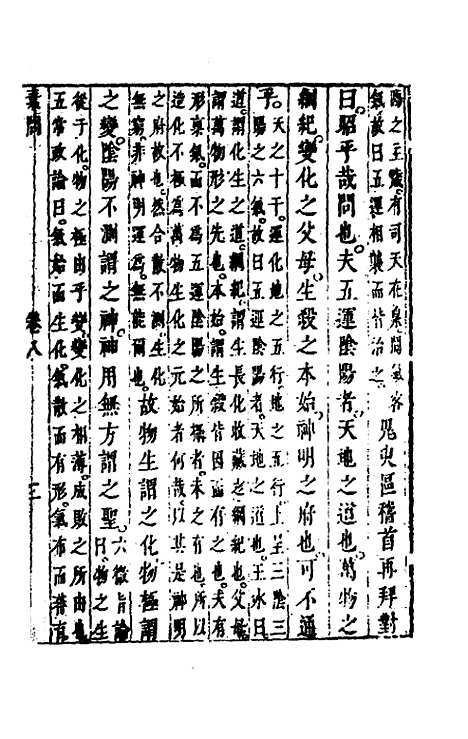 陽之至數有司天在泉間氣客
氣故曰五運相襲而皆治之
鬼臾區稽首再拜對
曰昭乎哉問也夫五運陰陽者天地之道也萬物之
綱紀變化之父母生殺之本始神明之府也可不通
乎
天之十干運化地之五行地之五行上呈三陰三
陽之六氣故曰五運陰陽者天地之道也王冰曰
道謂化生之道綱紀謂生長化收藏之綱紀也父母
謂萬物形之先也本始謂生殺皆因而有之也夫有
形稟氣而不爲五運陰陽之所攝者未之有也所以
造化不極爲萬物生化之元始者何哉以其是神明
之府故也然合散不測生化
無窮非神明運爲無能爾也
故物生謂之化物極謂
之變陰陽不測謂之神神用無方謂之聖
六微旨論
曰物之生
從于化物之極由乎變變化之相薄成敗之所由也
五常政論曰氣始而生化氣散而有形氣布而蕃育
素問
卷八
三